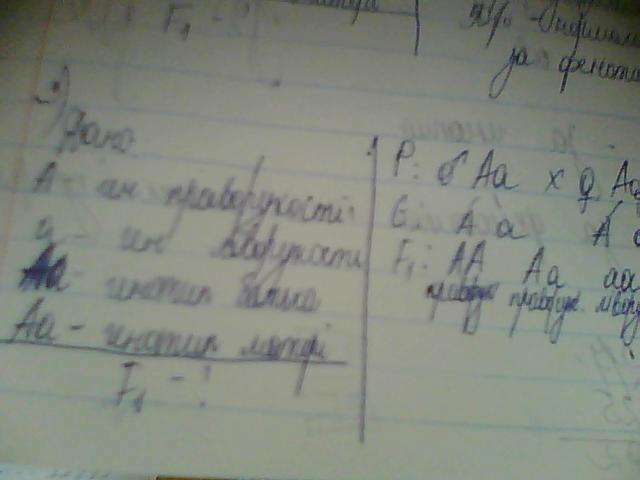 F₁ - ?
50% -
за фенот
Дано
А - ген праворукості
а - ген ліворукості
Аа - генотип батька
Аа - генотип матері
F₁ - ?
P: ♂ Aa x ♀ Aa
G: A a A
F₁: AA Aa aa
праворук праворук ліворук